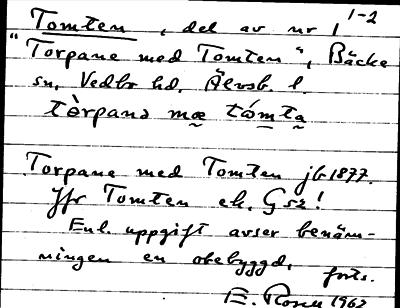 1-2
Tomten, del av nr 1
"Torpane med Tomten", Bäcke
sn, Vedbo hd, Älvsb. l.
tòrpanə mæ tómta
Torpane med Tomten jb 1877.
Jfr Tomten ek. Gsz!
Enl. uppgift avser benäm-
ningen en obebyggd,
forts.
E. Rosén 1962